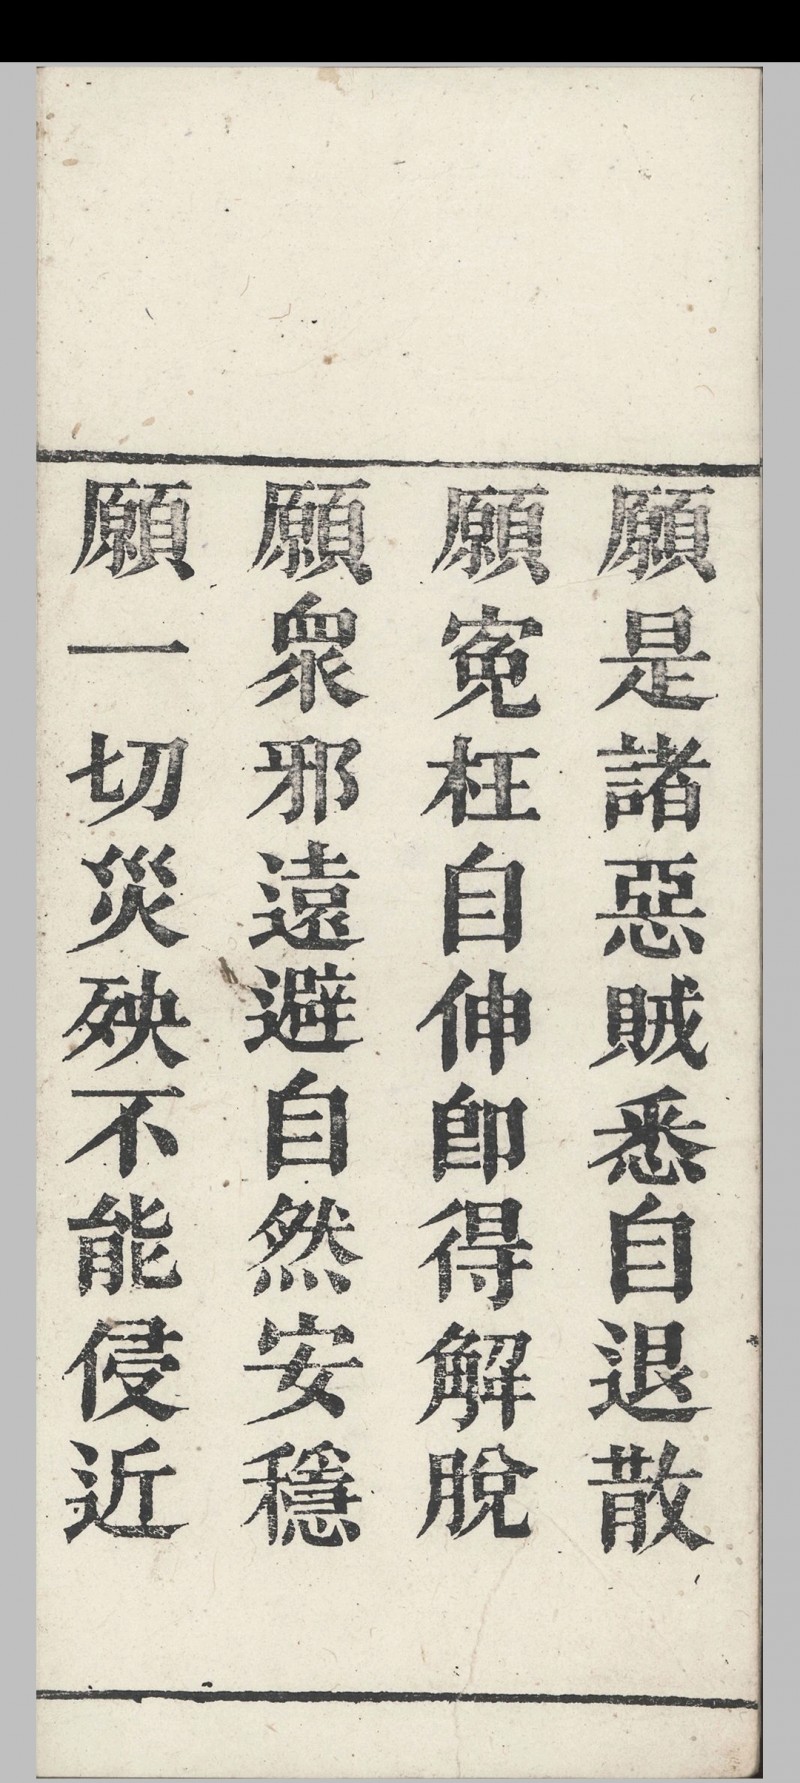 願是諸惡賊悉自退散
願寃枉自伸卽得解脫
願衆邪遠避自然安穩
願一切災殃不能侵近